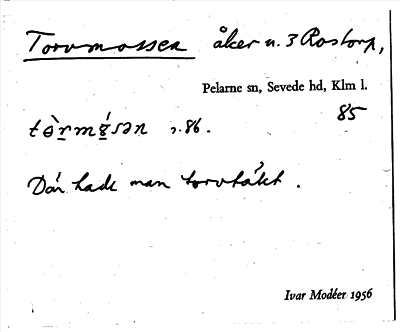 Torvmossen åker u. 3 Rostorp,
Pelarne sn, Sevede hd, Klm l.
85
s. 86.
Där hade man torvtäkt.
Ivar Modéer 1956